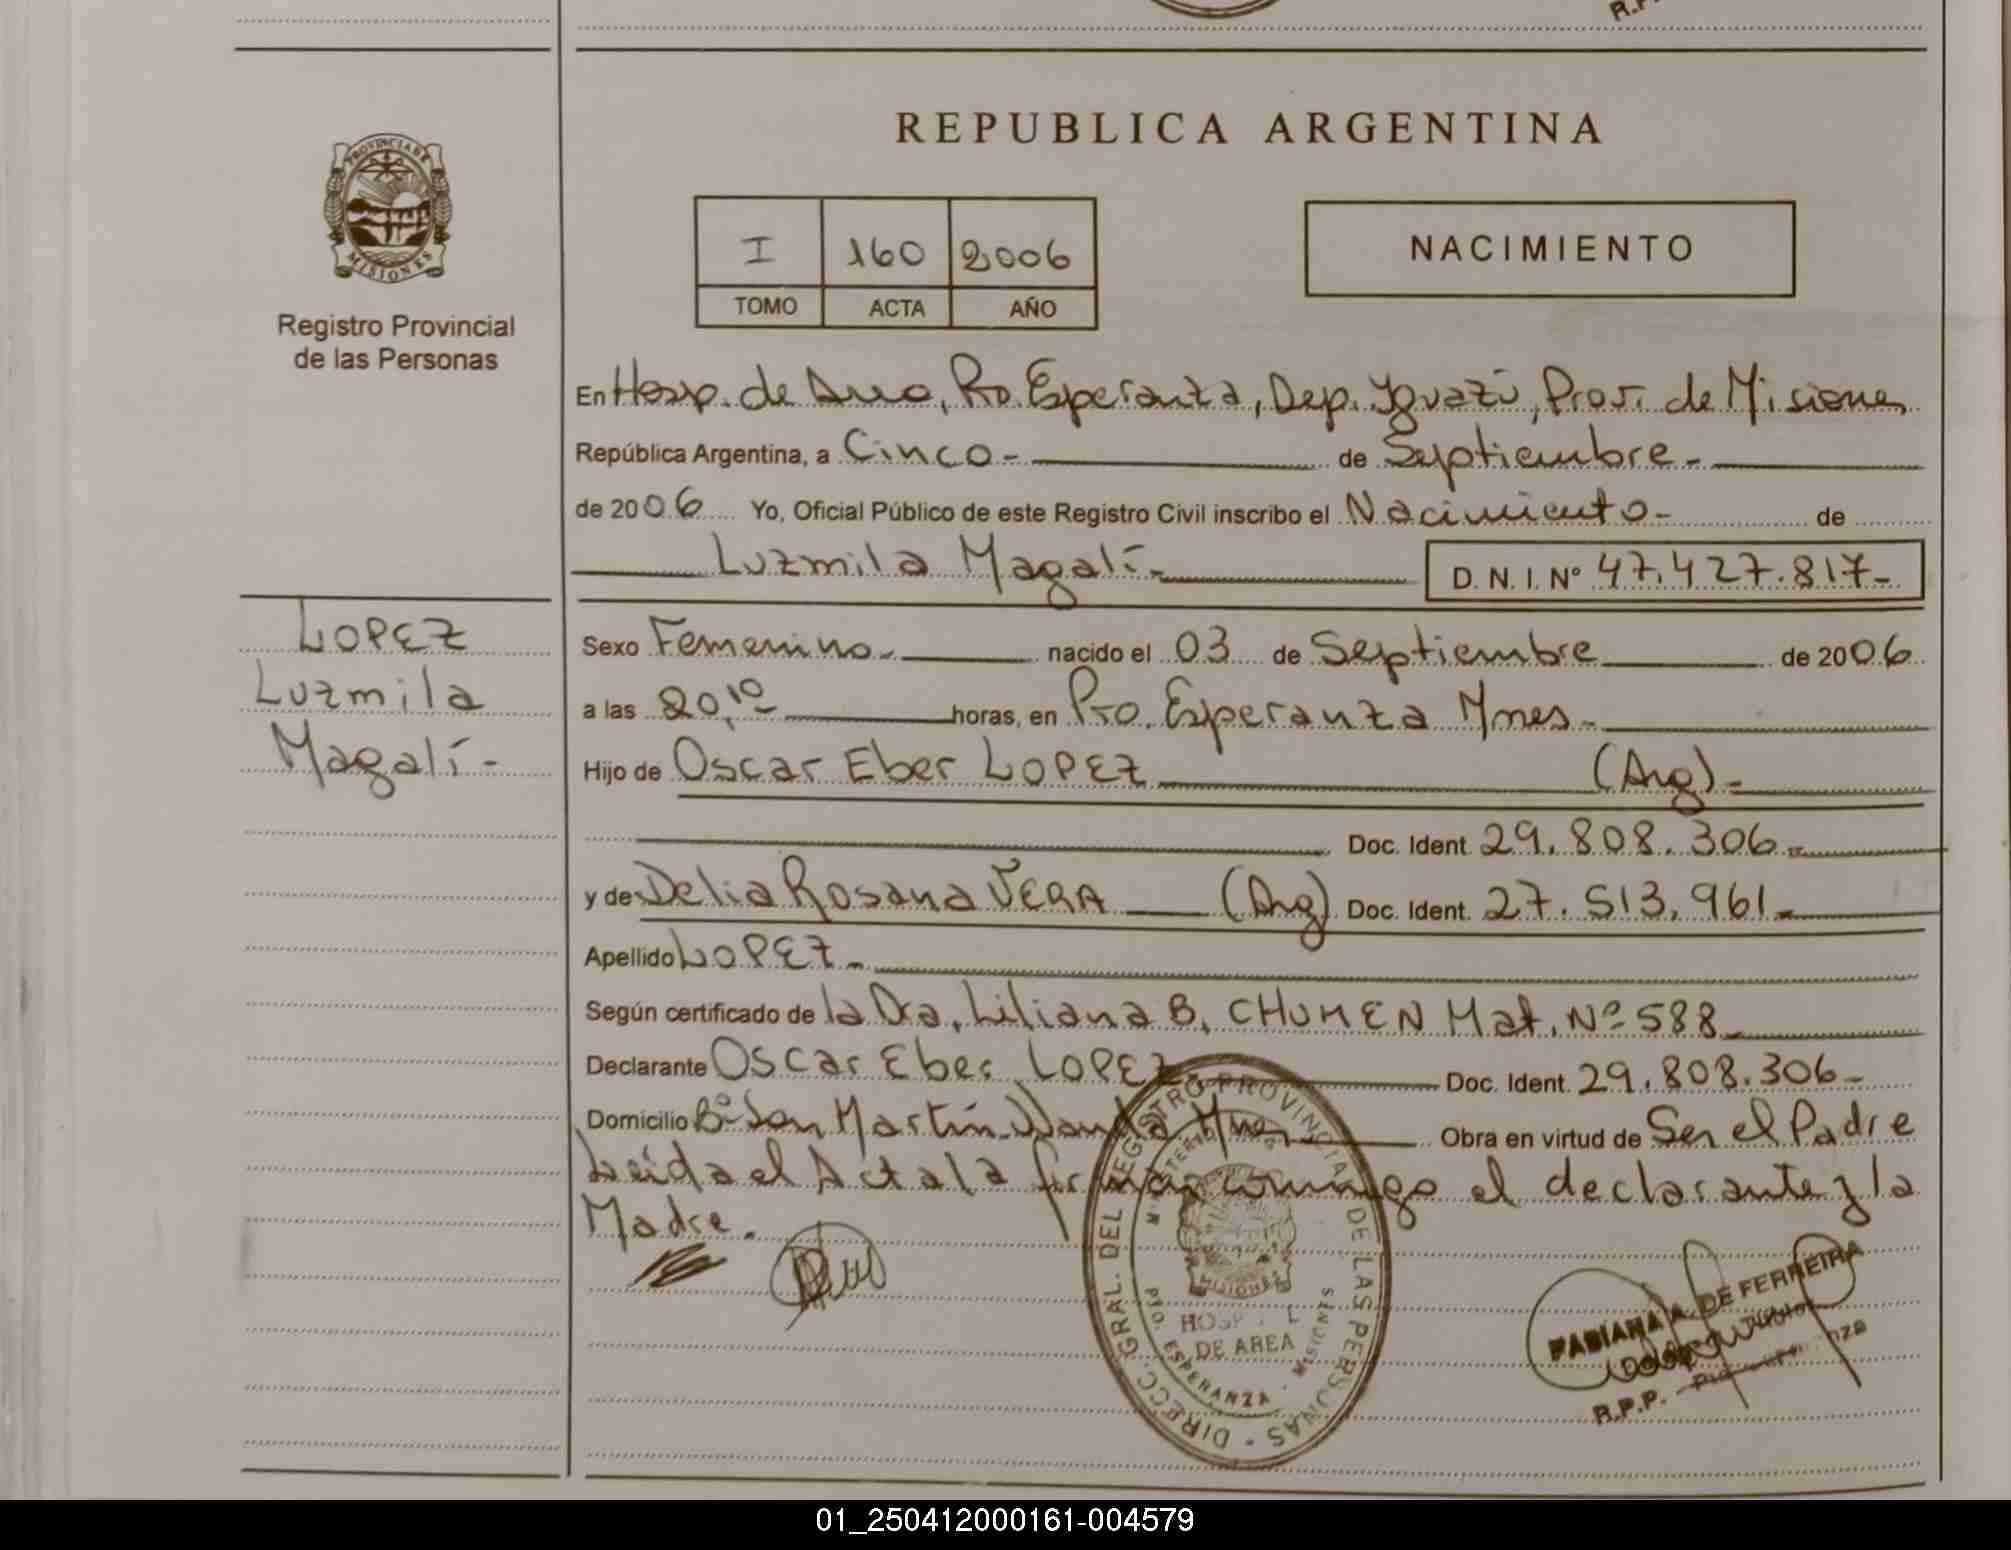 R.P.
REPUBLICA ARGENTINA
PROVINCIA DE
MISIONES
Registro Provincial
de las Personas
I 160 2006
TOMO ACTA AÑO
NACIMIENTO
En Hosp. de Area, Pto. Esperanza, Dep. Iguazú, Prov. de Misiones
República Argentina, a Cinco - de Septiembre -
de 2006 Yo, Oficial Público de este Registro Civil inscribo el Nacimiento - de
Luzmila Magalí -
D. N. I. Nº 47.427.817-
LOPEZ
Luzmila
Magalí -
Sexo Femenino - nacido el 03 de Septiembre de 2006
a las 20,10 horas, en Pto. Esperanza Mnes -
Hijo de Oscar Eber LOPEZ (Arg) -
Doc. Ident. 29.808.306 -
y de Delia Rosana VERA (Arg) Doc. Ident. 27.513.961 -
Apellido LOPEZ -
Según certificado de la Dra. Liliana B. CHUMEN Mat. Nº 588 -
Declarante Oscar Eber LOPEZ - Doc. Ident. 29.808.306 -
Domicilio Bº San Martín - Wanda Mnes Obra en virtud de Ser el Padre
Leida el Acta la firman conmigo el declarante y la
Madre.
DIRECC. GRAL. DEL REGISTRO PROVINCIAL DE LAS PERSONAS -
MISIONES
HOSP L
DE AREA
PTO. ESPERANZA - MISIONES
FABIANA A. DE FERREIRA
R.P.P. -
01_250412000161-004579